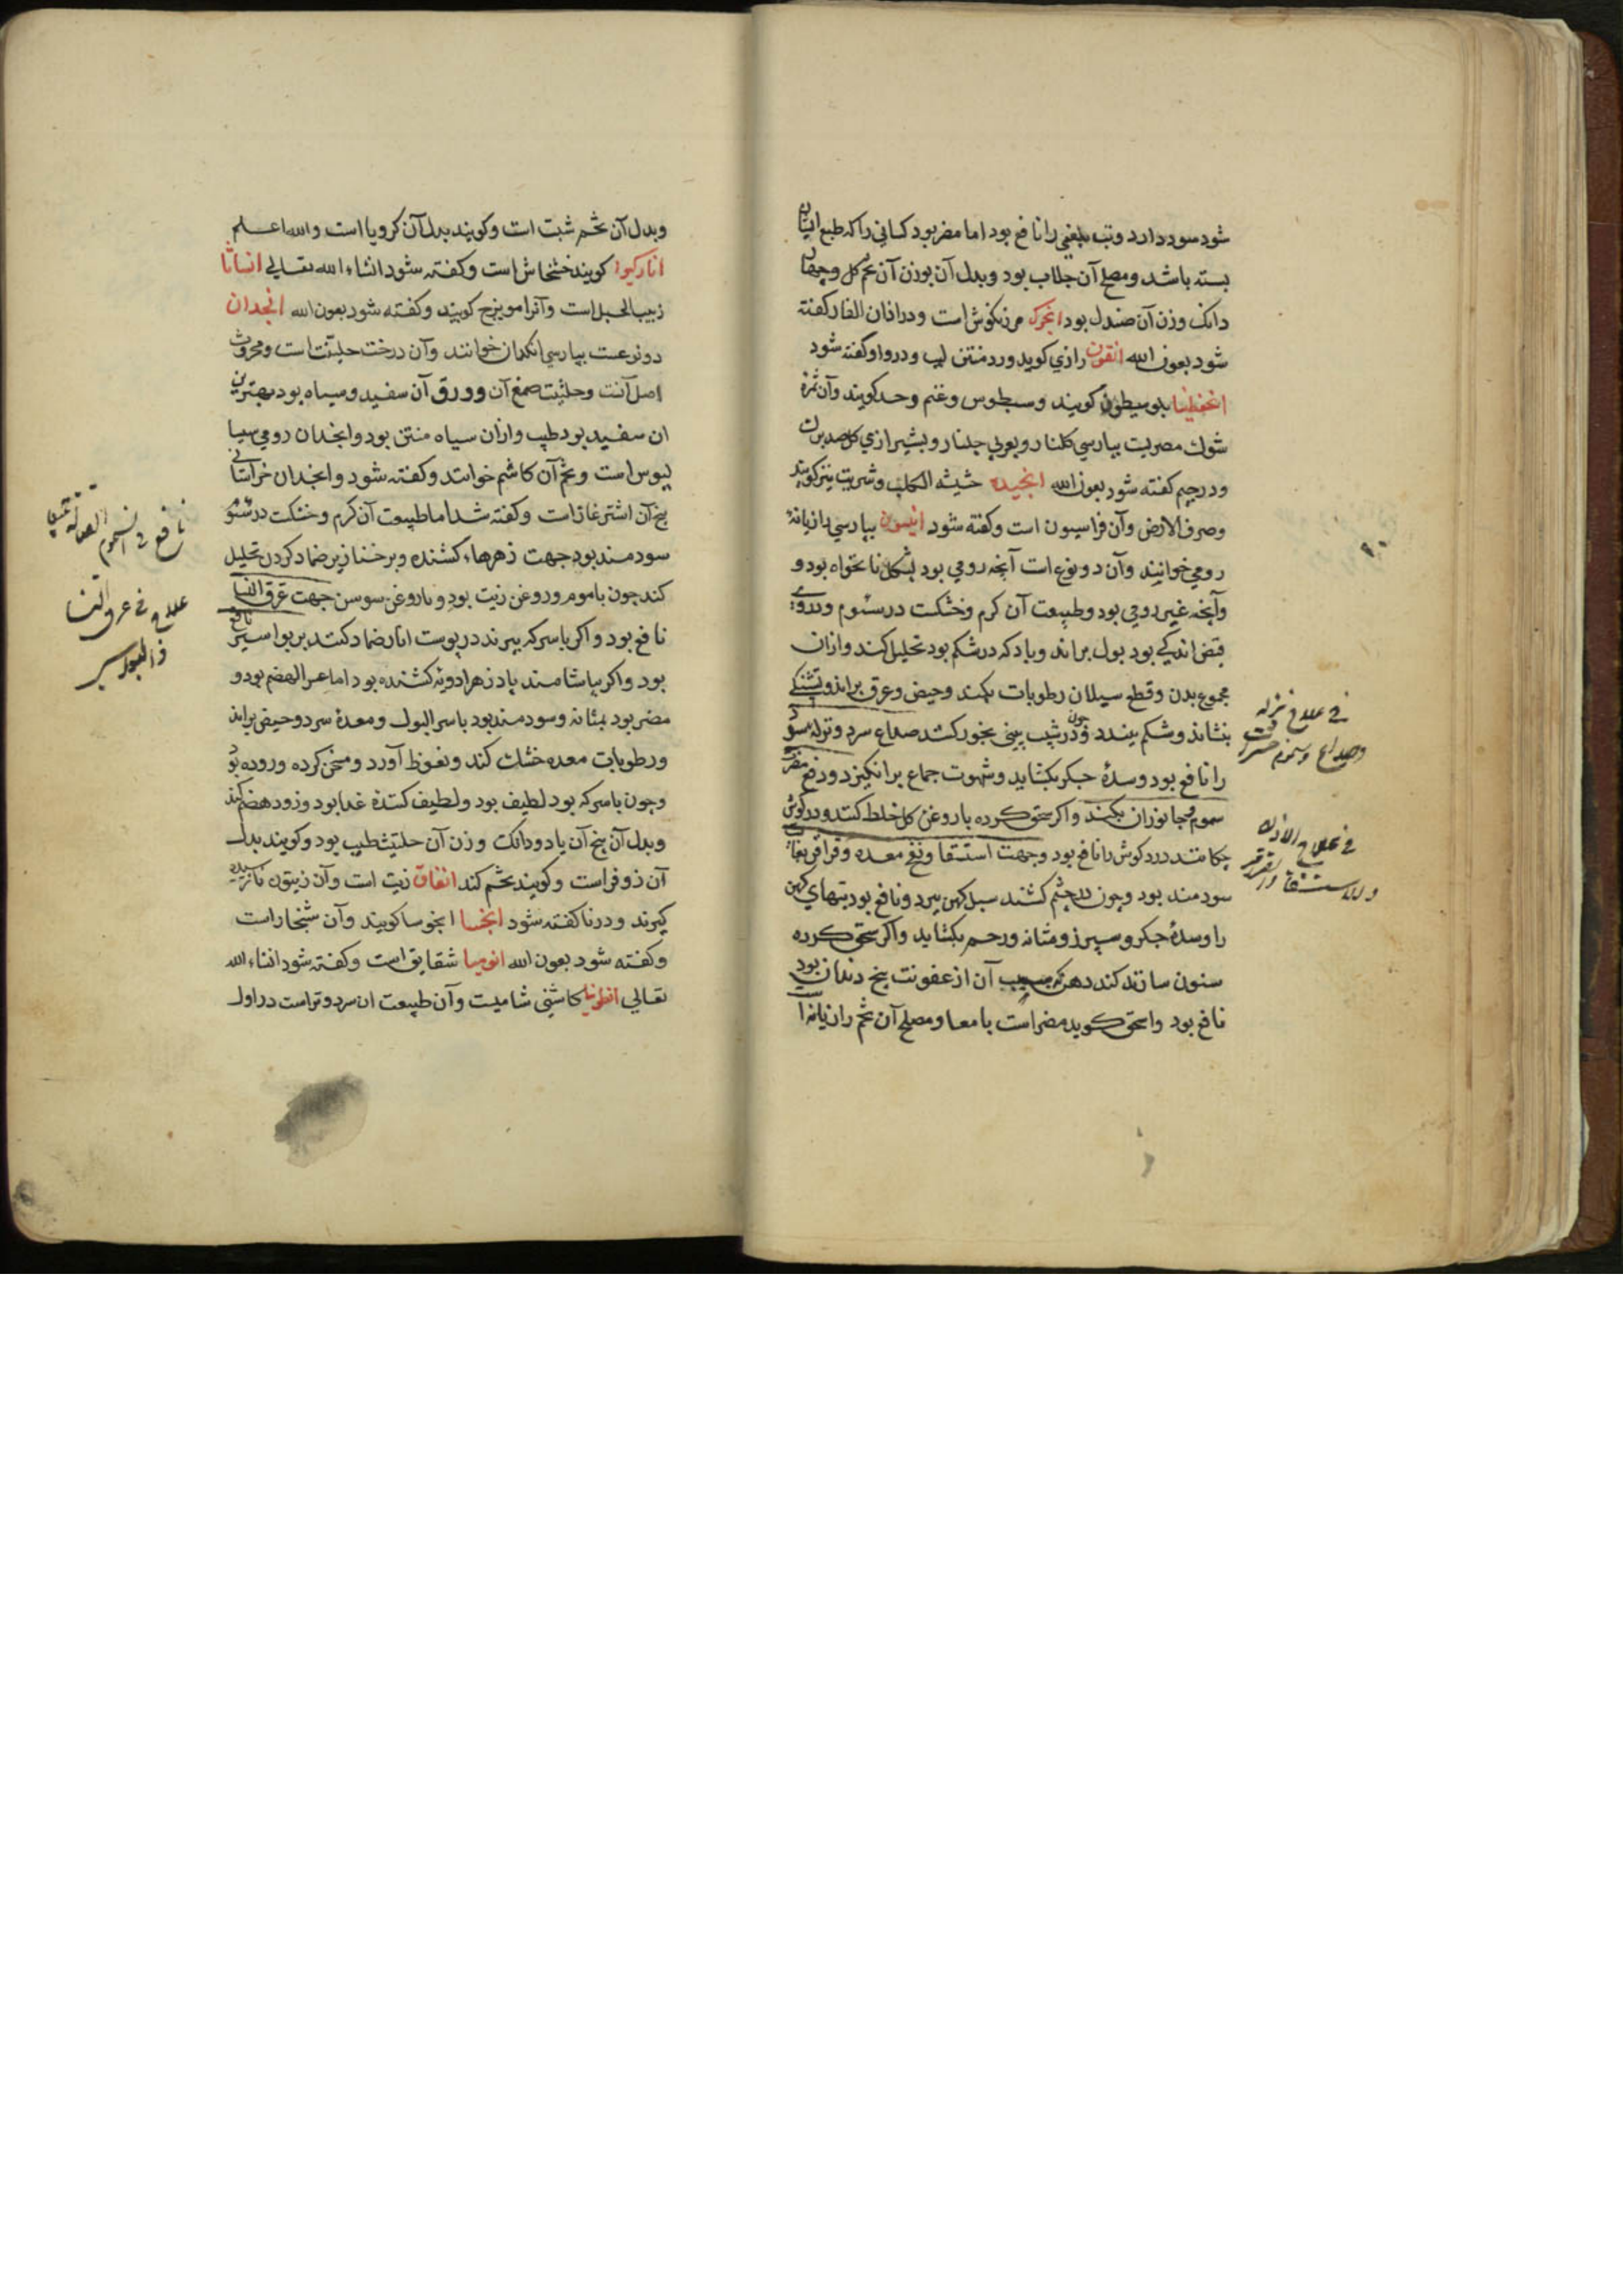 شود سود دارد وتب بلغمی را نافع بود اما مضر بود کسانی را که طبع ایشان
بسته باشد ومصلح آن جلاب بود وبدل آن بوزن آن تخم کل وچهار
دانک وزن آن صندل بود انجرک مرزنکوش است ودر اذان الفار کفته
شود بعون الله انقون رازی کوید ورد منتن است ودر واو کفته شود
کویند وسطوس وغنم وحد کویند وآن ثمرهٔ
شوک مصریت بپارسی کلنار وبعربی جلنار وبشیرازی کل صدبرک
ودر جیم کفته شود بعون الله انجیده حشیشه الکلب وشربت نیز کویند
وصوف الارض وآن فراسیون است وکفته شود انیسون بپارسی بازیانهٔ
رومی خوانند وآن دو نوع است آنچه رومی بود بشکل نانخواه بود و
وآنچه غیر رومی بود وطبیعت آن کرم وخشکت در سئوم ودروی
قبض اندکی بود بول براند وبادکه در شکم بود تحلیل کند وازان
مجموع بدن وقطع سیلان رطوبات بکند وحیض وعرق براند وتشنکی
بنشاند وشکم ببندد وچون در شیب بینی بخور کنند صداع سرد ونزله سرد
را نافع بود وسدهٔ جکر بکشاید وشهوت جماع برانکیزد ودفع مضرت
سموم وجانوران بکند واکر سحق کرده با روغن کل خلط کنند ودر کوش
چکانند درد کوش را نافع بود وجهت استسقا ونفخ معده وقراقر بغایت
سودمند بود وچون در چشم کشند سبل کهن ببرد ونافع بود تبهای کهن
را وسدهٔ جکر وسپرز ومثانه ورحم بکشاید واکر سحق کرده
سنون سازند کند دهن که سبب آن از عفونت بیخ دندان بود
نافع بود واسحق کوید مضر است بامعا ومصلح آن تخم رازیانه است
فی علاج نزله
وصداع وسموم
فی علاج الاذن
والاستسقا والقراقر
وبدل آن تخم شبت است وکویند بدل آن کرویا است والله اعلم
انارکیوا کویند خشخاش است وکفته شود انشاء الله تعالی انساثا
زبیب الجبل است وآنرا مویزج کویند وکفته شود بعون الله انجدان
دو نوعست بپارسی انکدان خوانند وآن درخت حلتیت است ومحروث
اصل آنست وحلتیت صمغ آن وورق آن سفید وسیاه بود بهترین
ان سفید بود طیب وازان سیاه منتن بود وانجدان رومی سیسا
لیوس است وتخم آن کاشم خوانند وکفته شود وانجدان خراسانی
بیخ آن اشترغاز است وکفته شد اما طبیعت آن کرم وخشکت در سئوم
سودمند بود جهت زهرهاء کشنده وبر خنازیر ضماد کردن تحلیل
کند چون با موم وروغن زیت بود وبا روغن سوسن جهت عرق النسا
نافع بود واکر با سرکه بپزند در پوست انار ضماد کنند بر بواسیر نافع
بود واکر بیاشامند پادزهر ادویه کشنده بود اما عسر الهضم بود و
مضر بود بمثانه وسودمند بود باسر البول ومعدهٔ سرد وحیض براند
ورطوبات معده خشک کند ونعوظ آورد ومسخن کرده وروده بود
وچون با سرکه بود لطیف بود ولطیف کنندهٔ غدا بود وزود هضم کند
وبدل آن بیخ آن یا دو دانک وزن آن حلتیت طیب بود وکویند بدل
آن ذوفراست وکویند تخم کند انفاق زیت است وآن زیتون نارسیده
کیرند ودر زا کفته شود انخسا انجوسا کویند وآن شنجار است
وکفته شود بعون الله انومیا شقایق است وکفته شود انشاء الله
تعالی انطونیا کاشنی شامیت وآن طبیعت ان سرد وتر است در اول
نافع فی السموم القتاله
علاج فی عرق النسا
والبواسیر